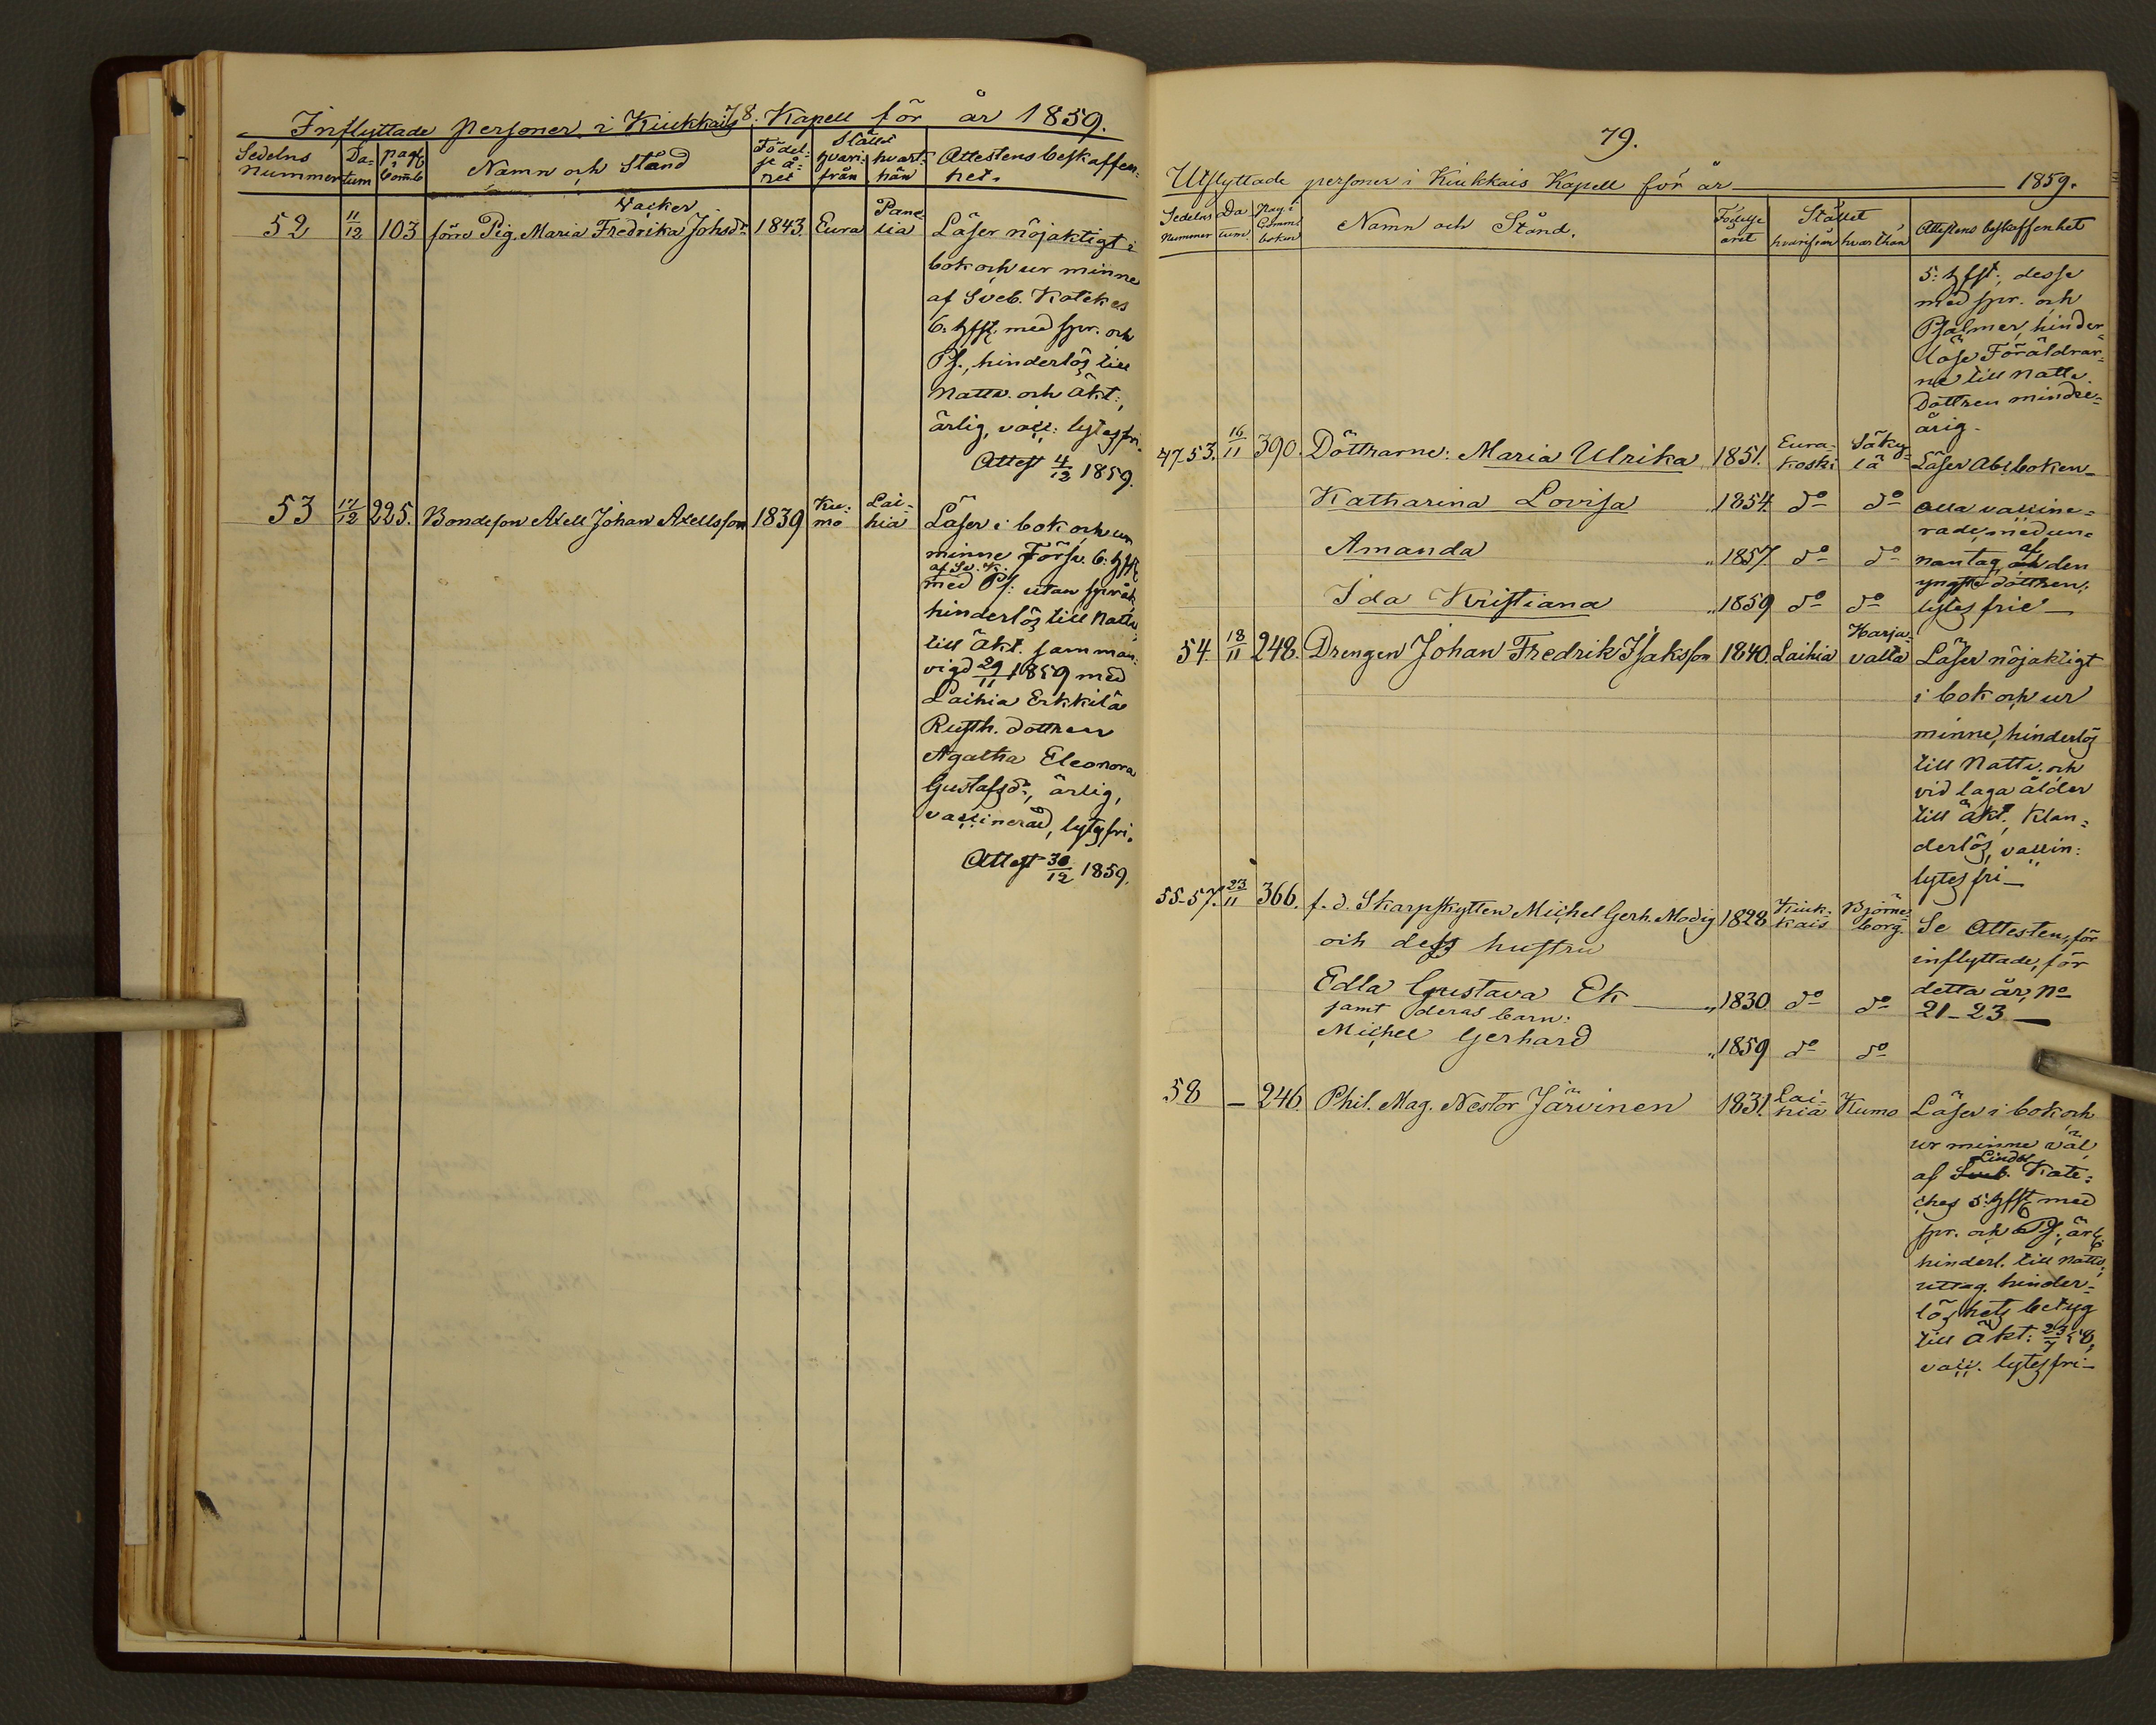 78.
Inflyttade personer i Kiukkais Kapell för år 1859.
Sedelns nummer Da-tum pag. i Comb. Namn och Stånd Födel-se å-ret Stället hvari-från hvart-hän Attestens beskaffen-het.
Wacker
52 11/12 103 förre Pig. Maria Fredrika Johsdr 1843. Eura Pane-lia Läser nöjaktigt i
bok och ur minne
af Sveb. Katekes
6. hfst. med spr. och
Ps., hinderlös till
Nattv. och äkt.,
ärlig, vacc: lytesfri.
Attest 4/12 1859.
53 17/12 225. Bondeson Axell Johan Axellsson 1839 Ku-mo Lai-hia Läser i bok och ur
minne Förkl. 6. hfst
af Sv. K.
med Ps: utan språk
hinderlös till Nattv.
till äkt. samman-
vigd 29/11 1859 med
Laihia Erkkilä
Rusth. dottren
Agatha Eleonora
Gustafsdr, ärlig,
vaccinerad, lytesfri.
Attest 30/12 1859.
79.
Utflyttade personer i Kiukkais Kapell för år 1859.
Sedelns Nummer Da-tum. Pag. i Comm. boken Namn och Stånd. Födelse året Stället hvarifrån hvarthän Attestens beskaffenhet
5: hfst; desse
med spr. och
Psalmer, hinder-
löse Föräldrar-
ne till Nattv.
Dottren mindre-
årig.
47-53. 16/11 390. Döttrarne: Maria Ulrika 1851. Eura-koski Säky-lä Läser Abcboken
Katharina Lovisa " 1854. do do alla vaccine-
rade, med un-
Amanda " 1857. do do nantag af den
yngste dottren;
Ida Kristiana " 1859 do do lytesfrie
54. 18/11 248. Drengen Johan Fredrik Isaksson 1840. Laihia Harja-valta Läser nöjaktigt
i bok och ur
minne, hinderlös
till Nattv. och
vid laga ålder
till äkt. Klan-
derlös, vaccin:
lytesfri
55-57. 23/11 366. f. d. Skarpskytten Michel Gerh. Modig 1828 Kiuk-kais Björne-borg. Se Attesten, för
och dess hustru inflyttade, för
Edla Gustava Ek " 1830. do do detta år, No
samt deras barn: 21-23
Michel Gerhard " 1859 do do
58 - 246. Phil. Mag. Nestor Järvinen 1831. Lai-hia Kumo Läser i bok och
ur minne väl
Lindbl
af Sveb. Kate-
ches 5: hfst med
spr. och Ps., ärl:
hinderl. till Nattv.
uttag. hinder-
löshets betyg
till äkt: 23/7 58,
vacc. lytesfri